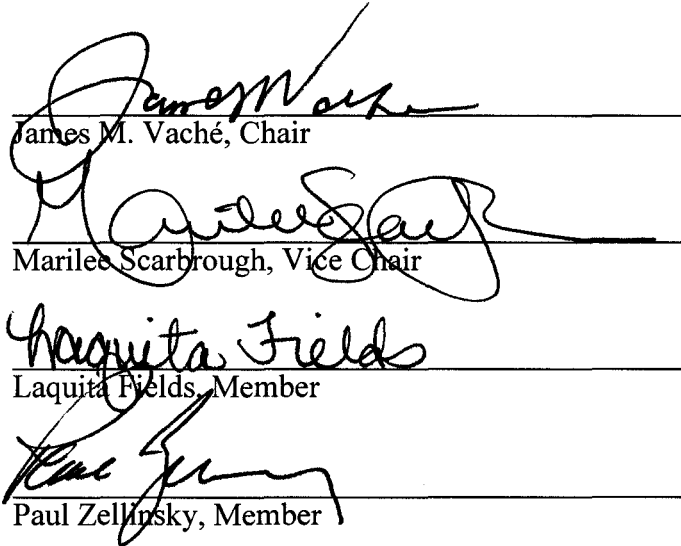 James M. Vaché
James M. Vaché, Chair
Marilee Scarbrough
Marilee Scarbrough, Vice Chair
Laquita Fields
Laquita Fields, Member
Paul Zellinsky
Paul Zellinsky, Member